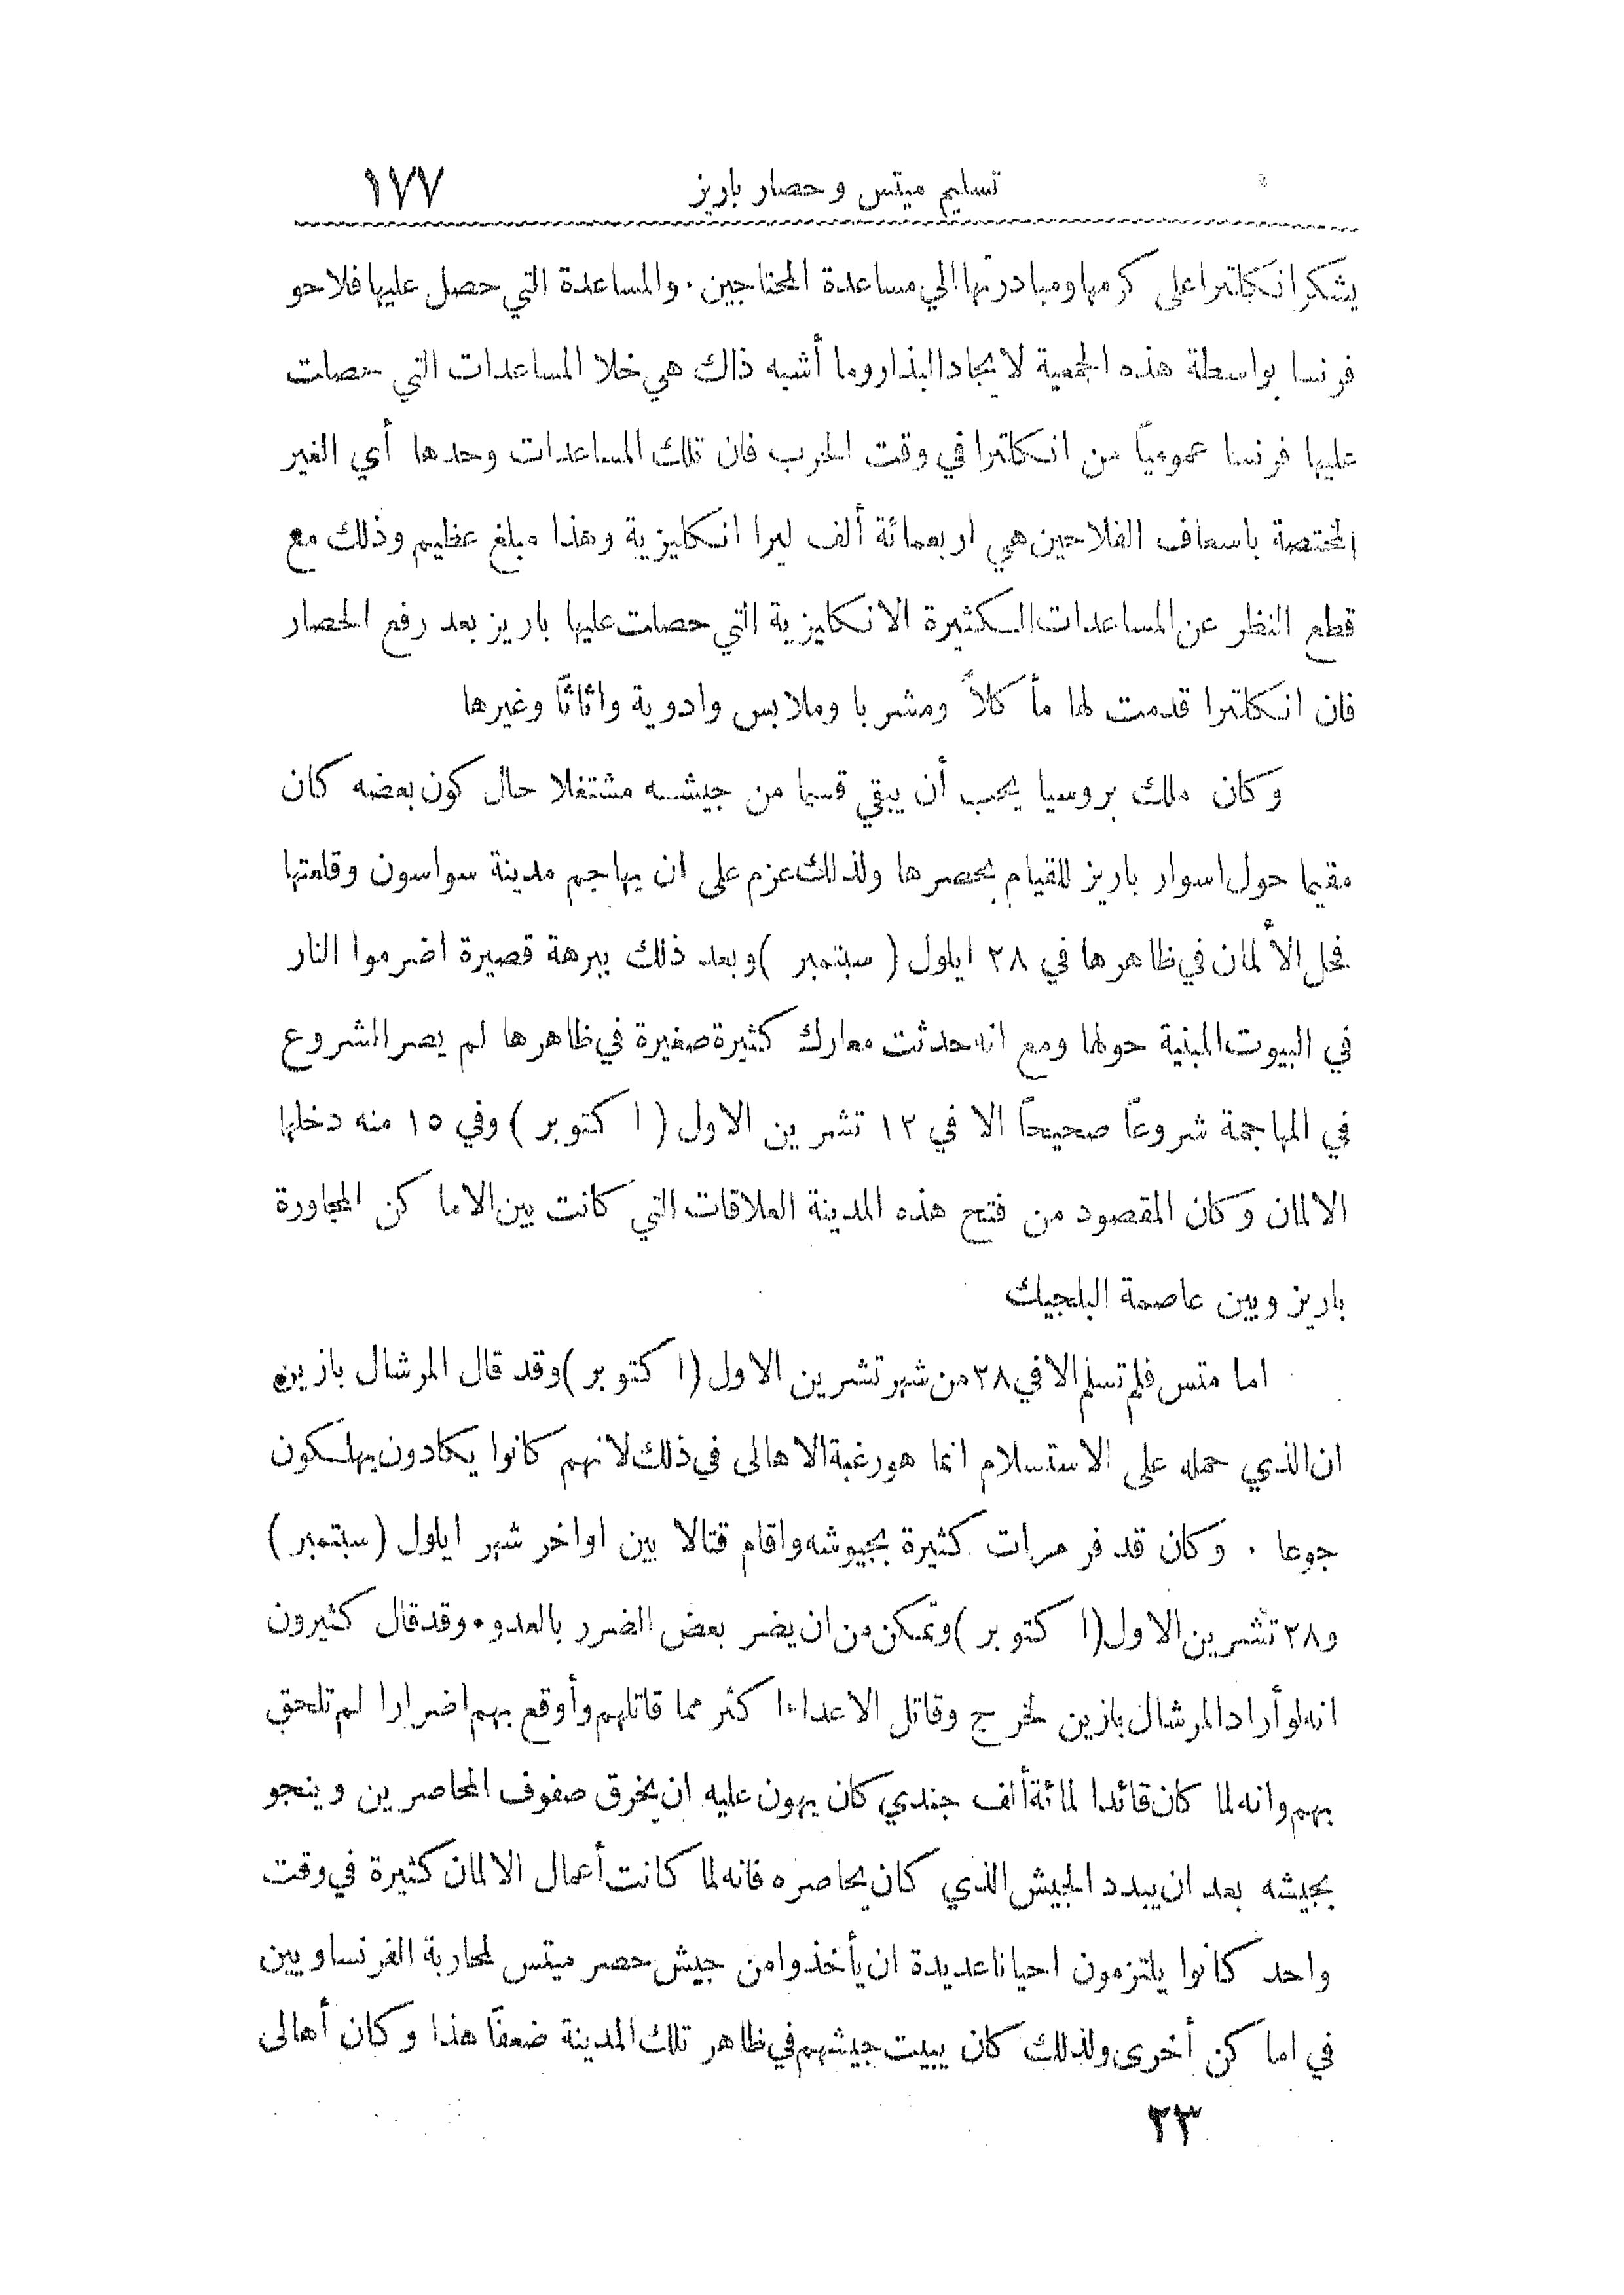 تسليم ميتس وحصار باريز ١٧٧
يشكر انكلترا على كرمها ومبادرتها الي مساعدة المحتاجين . والمساعدة التي حصل عليها فلاحو
فرنسا بواسطة هذه الجمعية لايجاد البذار وما أشبه ذاك هي خلا المساعدات التي حصلت
عليها فرنسا عمومياً من انكلترا في وقت الحرب فان تلك المساعدات وحدها أي الغير
المختصة باسعاف الفلاحين هي اربعمائة ألف ليرا انكليزية وهذا مبلغ عظيم وذلك مع
قطع النظر عن المساعدات الكثيرة الانكليزية التي حصلت عليها باريز بعد رفع الحصار
فان انكلترا قدمت لها مأكلاً ومشربا وملابس وادوية واثاثاً وغيرها
وكان ملك بروسيا يحب أن يبقي قسما من جيشه مشتغلا حال كون بعضه كان
مقيما حول اسوار باريز للقيام بحصرها ولذلك عزم على ان يهاجم مدينة سواسون وقلعتها
فحل الألمان في ظاهرها في ٢٨ ايلول ( سبتمبر ) وبعد ذلك ببرهة قصيرة اضرموا النار
في البيوت المبنية حولها ومع انه حدثت معارك كثيرة صغيرة في ظاهرها لم يصر الشروع
في المهاجمة شروعاً صحيحاً الا في ١٢ تشرين الاول ( اكتوبر ) وفي ١٥ منه دخلها
الالمان وكان المقصود من فتح هذه المدينة العلاقات التي كانت بين الاماكن المجاورة
باريز وبين عاصمة البلجيك
اما متس فلم تسلم الا في ٢٨ من شهر تشرين الاول ( اكتوبر ) وقد قال المرشال بازين
ان الذي حمله على الاستسلام انما هو رغبة الاهالى في ذلك لانهم كانوا يكادون يهلكون
جوعا . وكان قد فر مرات كثيرة بجيوشه واقام قتالا بين اواخر شهر ايلول ( سبتمبر )
و٢٨ تشرين الاول ( اكتوبر ) وتمكن من ان يضر بعض الضرر بالعدو . وقد قال كثيرون
انه لو أراد المرشال بازين لخرج وقاتل الاعداء اكثر مما قاتلهم وأوقع بهم اضرارا لم تلحق
بهم وانه لما كان قائدا لمائة ألف جندي كان يهون عليه ان يخرق صفوف المحاصرين وينجو
بجيشه بعد ان يبدد الجيش الذي كان يحاصره فانه لما كانت أعمال الالمان كثيرة في وقت
واحد كانوا يلتزمون احيانا عديدة ان يأخذوا من جيش حصر ميتس لمحاربة الفرنساويين
في اماكن أخرى ولذلك كان يبيت جيشهم في ظاهر تلك المدينة ضعفاً هذا وكان أهالى
٢٣